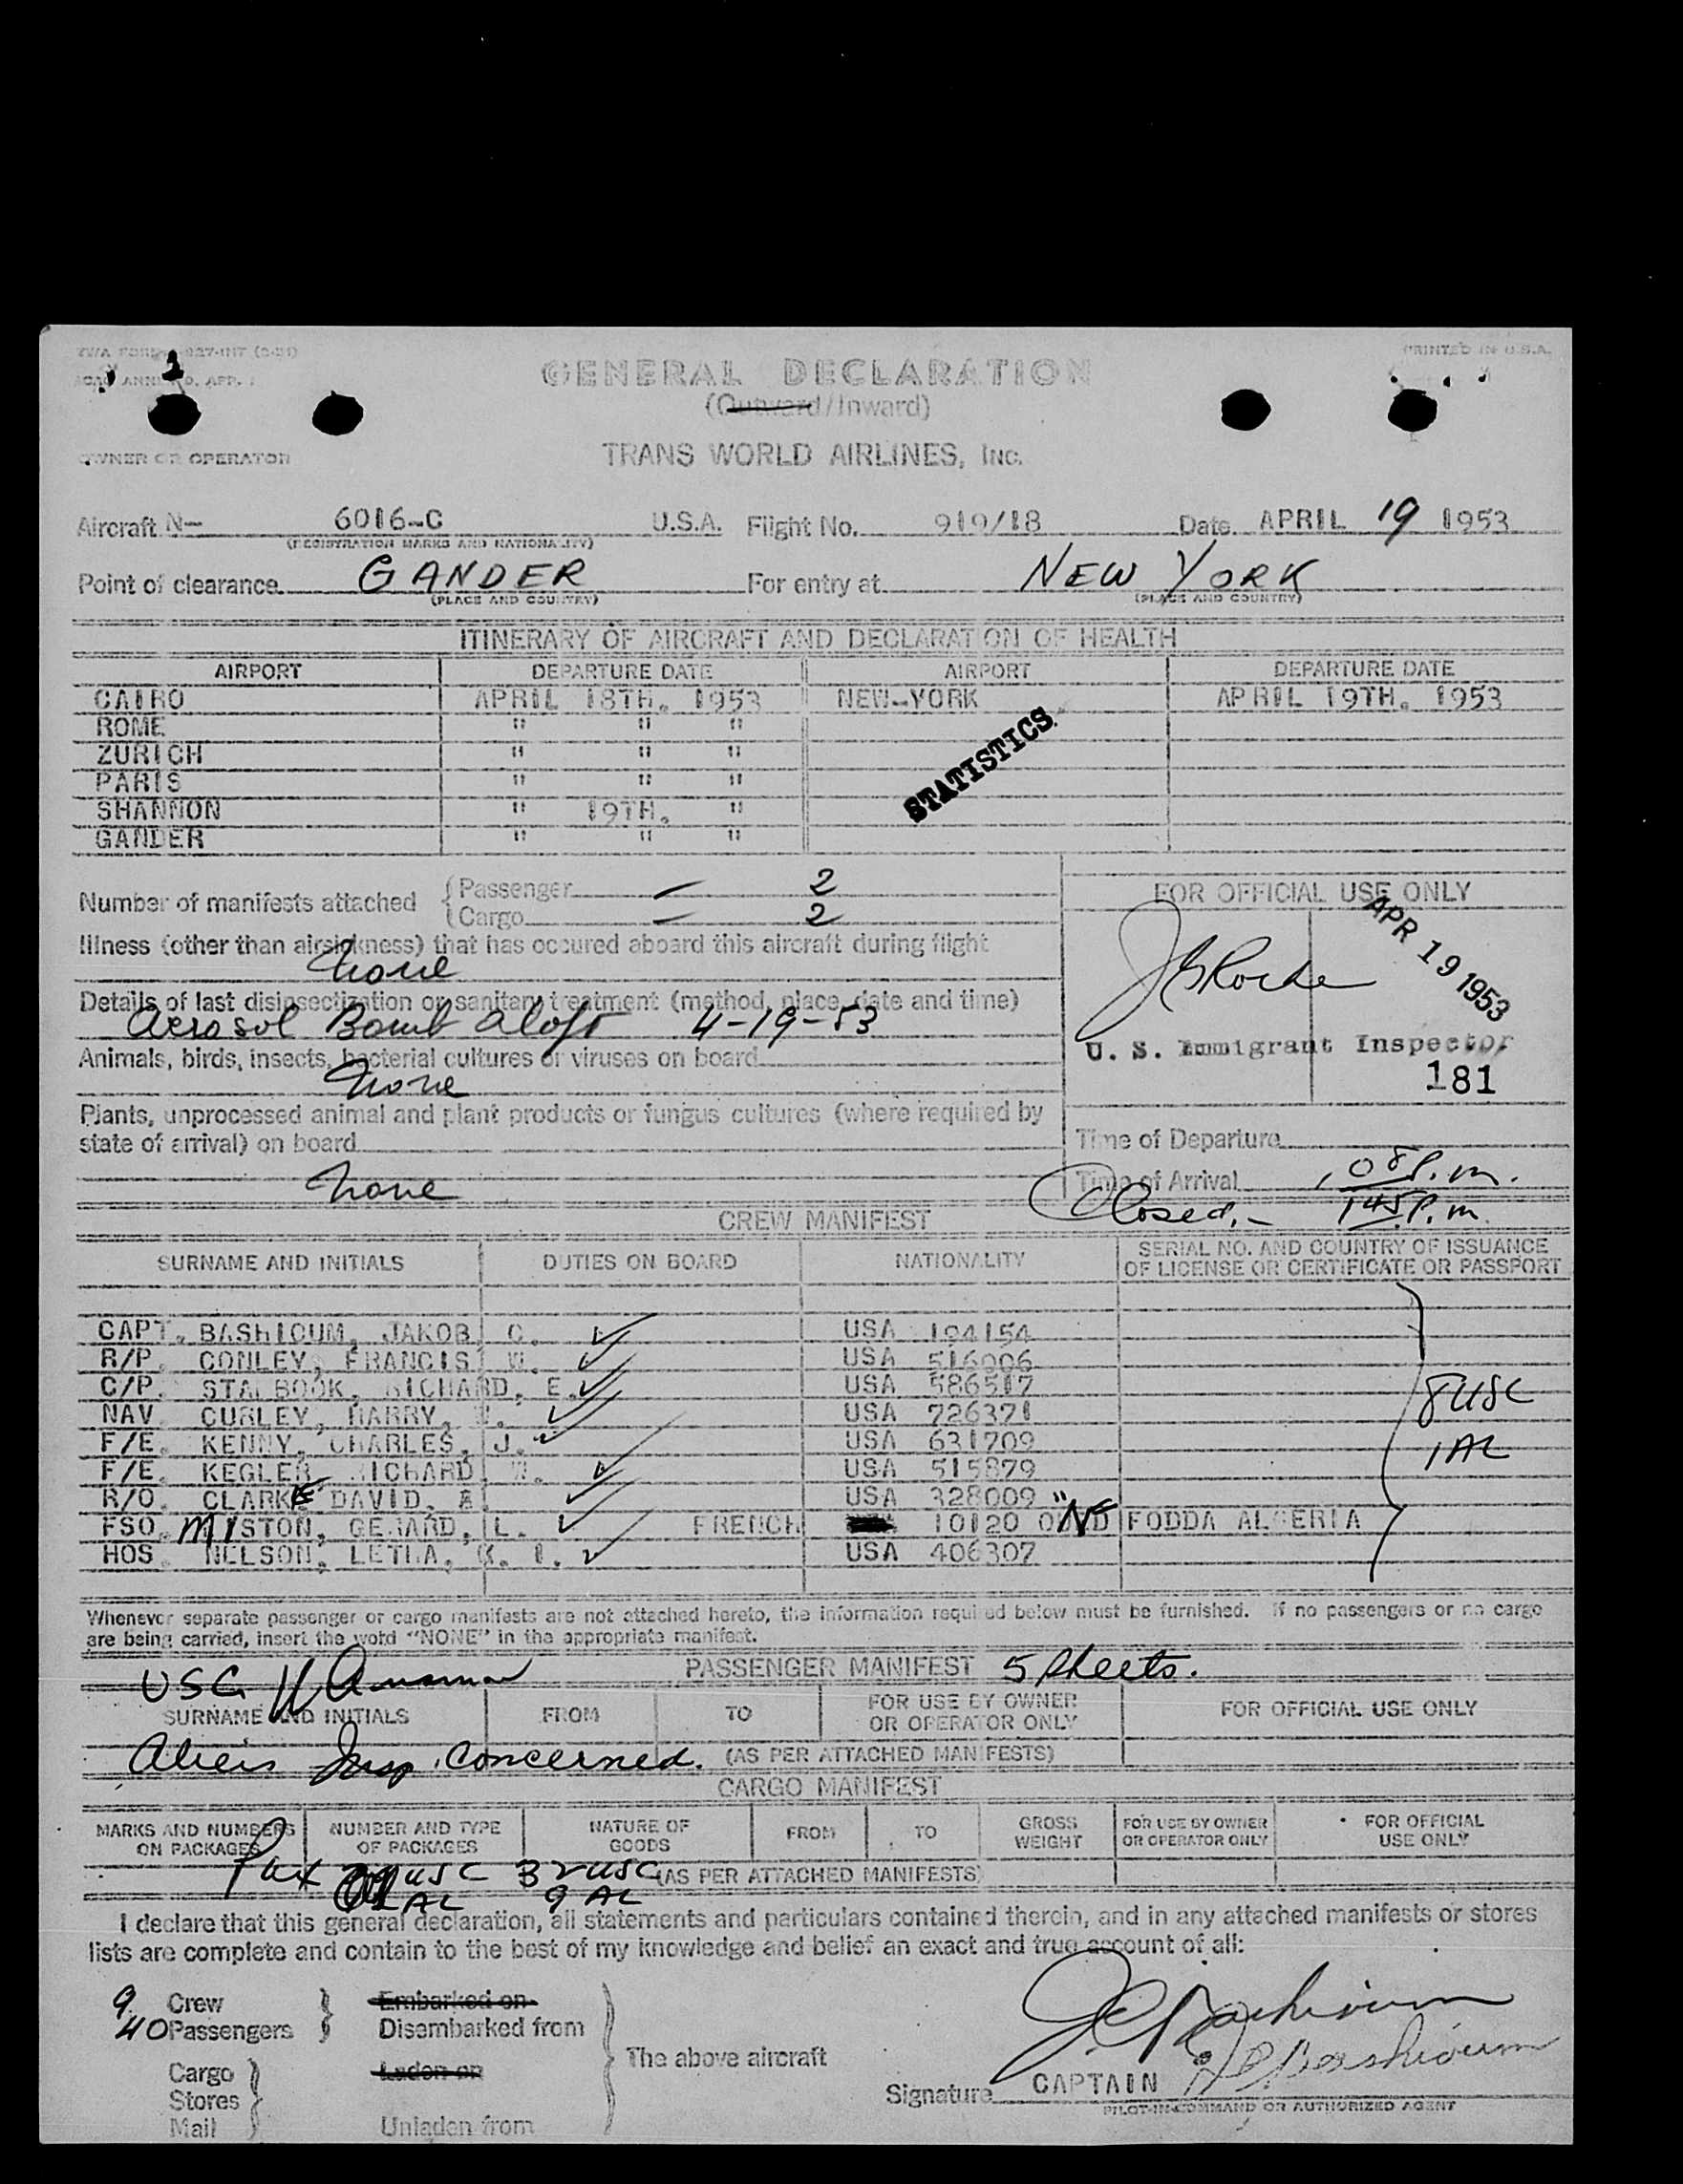 GENERAL DECLARATION
(Outward/Inward)
PRINTED IN U.S.A.
OWNER OR OPERATOR
TRANS WORLD AIRLINES, INC.
Aircraft N- 6016-C U.S.A. Flight No. 919/18 Date APRIL 19 1953
(REGISTRATION MARKS AND NATIONALITY)
Point of clearance GANDER For entry at NEW YORK
(PLACE AND COUNTRY) (PLACE AND COUNTRY)
ITINERARY OF AIRCRAFT AND DECLARATION OF HEALTH
AIRPORT DEPARTURE DATE AIRPORT DEPARTURE DATE
CAIRO APRIL 18TH. 1953 NEW-YORK APRIL 19TH. 1953
ROME " " "
ZURICH " " "
PARIS " " "
SHANNON " 19TH. "
GANDER " " "
STATISTICS
Number of manifests attached
Passenger — 2
Cargo — 2
Illness (other than airsickness) that has occured aboard this aircraft during flight
None
Details of last disinsectization or sanitary treatment (method, place, date and time)
Aerosol Bomb aloft 4-19-53
Animals, birds, insects, bacterial cultures or viruses on board
None
Plants, unprocessed animal and plant products or fungus cultures (where required by
state of arrival) on board
None
FOR OFFICIAL USE ONLY
APR 19 1953
U. S. Immigrant Inspector
181
Time of Departure
Time of Arrival 108 P.m.
Closed,- 145 P.m.
CREW MANIFEST
SURNAME AND INITIALS DUTIES ON BOARD NATIONALITY SERIAL NO. AND COUNTRY OF ISSUANCE
OF LICENSE OR CERTIFICATE OR PASSPORT
CAPT. BASHIOUM, JAKOB C. USA 194154
R/P. CONLEY, FRANCIS W. USA 516006
C/P. STALBOOK, RICHARD, E. USA 586517
NAV CURLEY, HARRY, USA 726371
F/E. KENNY, CHARLES, J. USA 631709
F/E. KEGLER RICHARD W. USA 515879
R/O. CLARKE DAVID, USA 328009
FSO. MISTON, GERARD, L. FRENCH 10120 FODDA ALGERIA
HOS. NELSON, LETHA, USA 406307
8 USC
1 AL
Whenever separate passenger or cargo manifests are not attached hereto, the information required below must be furnished. If no passengers or no cargo
are being carried, insert the word "NONE" in the appropriate manifest.
PASSENGER MANIFEST 5 sheets.
USC
SURNAME AND INITIALS FROM TO FOR USE BY OWNER
OR OPERATOR ONLY FOR OFFICIAL USE ONLY
Aliens Insp. Concerned. (AS PER ATTACHED MANIFESTS)
CARGO MANIFEST
MARKS AND NUMBERS
ON PACKAGES NUMBER AND TYPE
OF PACKAGES NATURE OF
GOODS FROM TO GROSS
WEIGHT FOR USE BY OWNER
OR OPERATOR ONLY FOR OFFICIAL
USE ONLY
Pax USC 32 USC (AS PER ATTACHED MANIFESTS)
AL 9 AL
I declare that this general declaration, all statements and particulars contained therein, and in any attached manifests or stores
lists are complete and contain to the best of my knowledge and belief an exact and true account of all:
9 Crew Embarked on
40 Passengers Disembarked from
The above aircraft
Cargo Laden on
Stores
Mail Unladen from
JC Bashioum
Signature CAPTAIN JC Bashioum
PILOT-IN-COMMAND OR AUTHORIZED AGENT